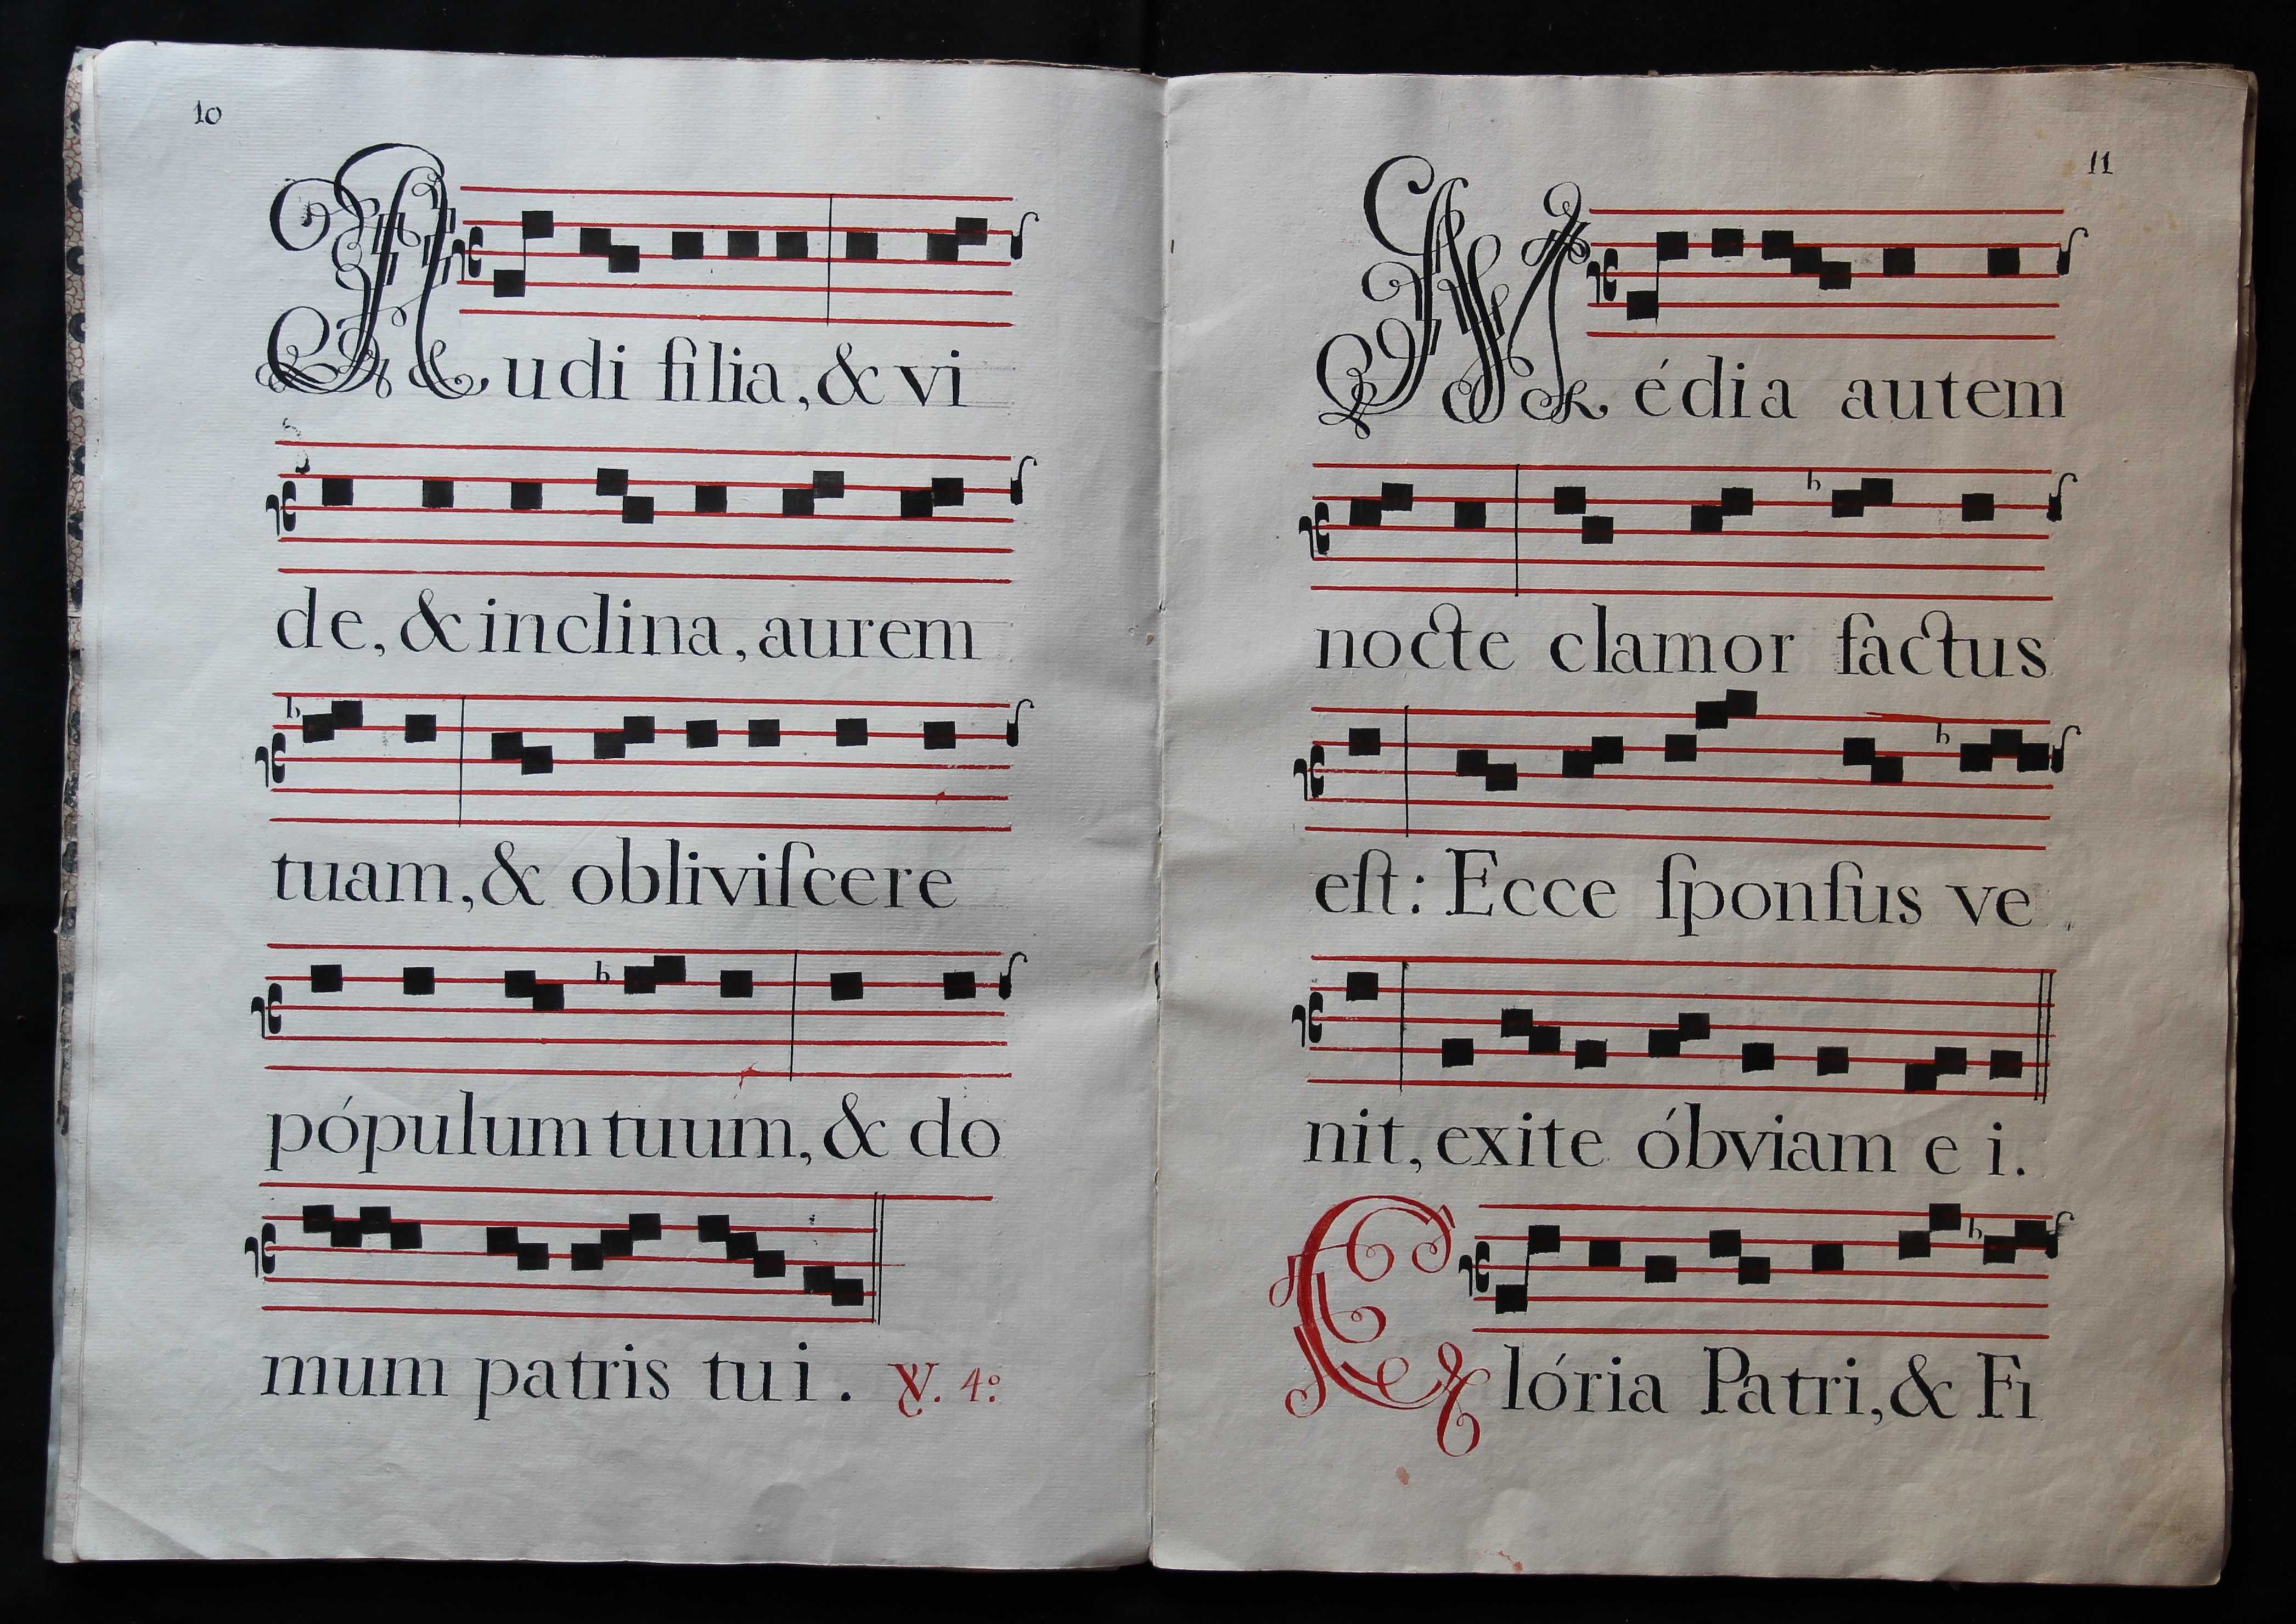 10
Audi filia, & vi
de, & inclina, aurem
tuam, & obliviſcere
pópulum tuum, & do
mum patris tui. ℣. 4º
11
Média autem
nocte clamor factus
eſt: Ecce ſponſus ve
nit, exite óbviam e i.
Glória Patri, & Fi